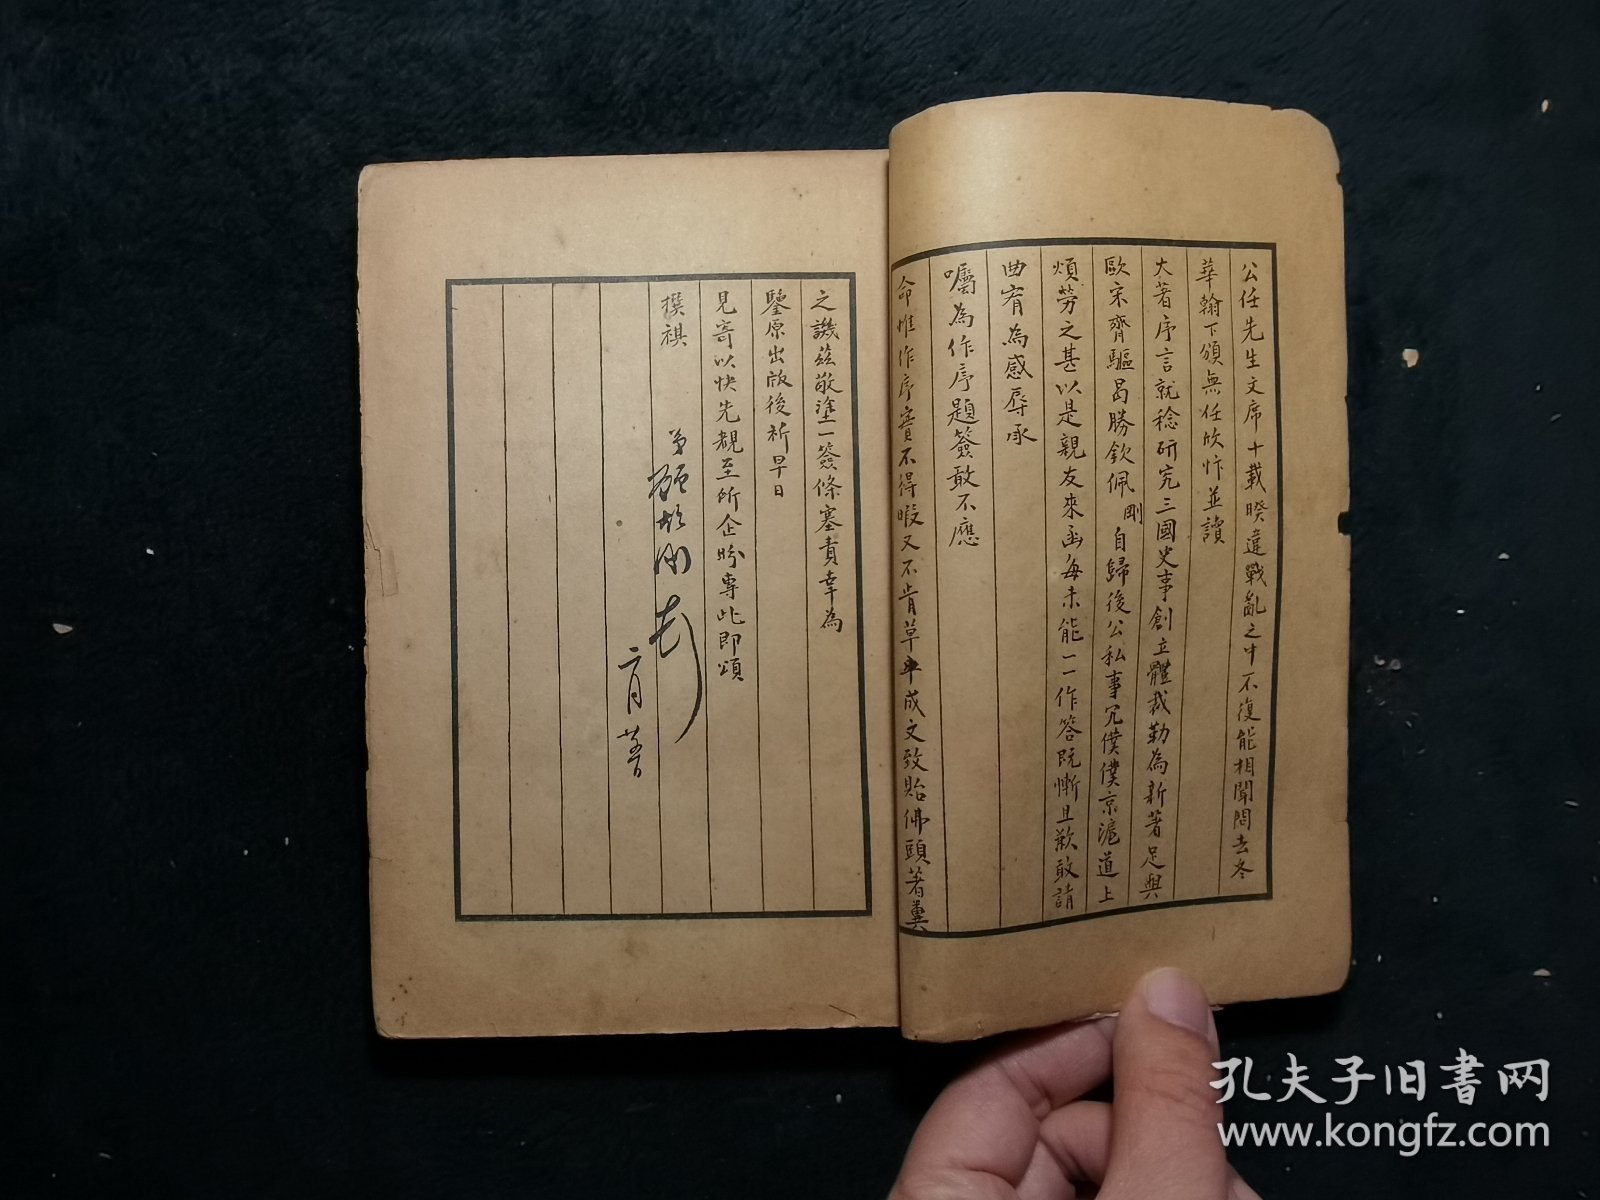 公任先生文席十載暌違戰亂之中不復能相聞問去冬
華翰下頒無任欣忭並讀
大著序言就稔研究三國史事創立體裁勒為新著足與
歐宋齊驅曷勝欽佩剛自歸後公私事冗僕僕京滬道上
煩勞之甚以是親友來函每未能一一作答既慚且歉敢請
曲宥為感辱承
囑為作序題簽敢不應
命惟作序實不得暇又不肯草率成文致貽佛頭著糞
之譏茲敬塗一簽條塞責幸為
鑒原出版後祈早日
見寄以快先覩至所企盼專此即頌
撰祺
弟顧頡剛
孔夫子旧书网
www.kongfz.com